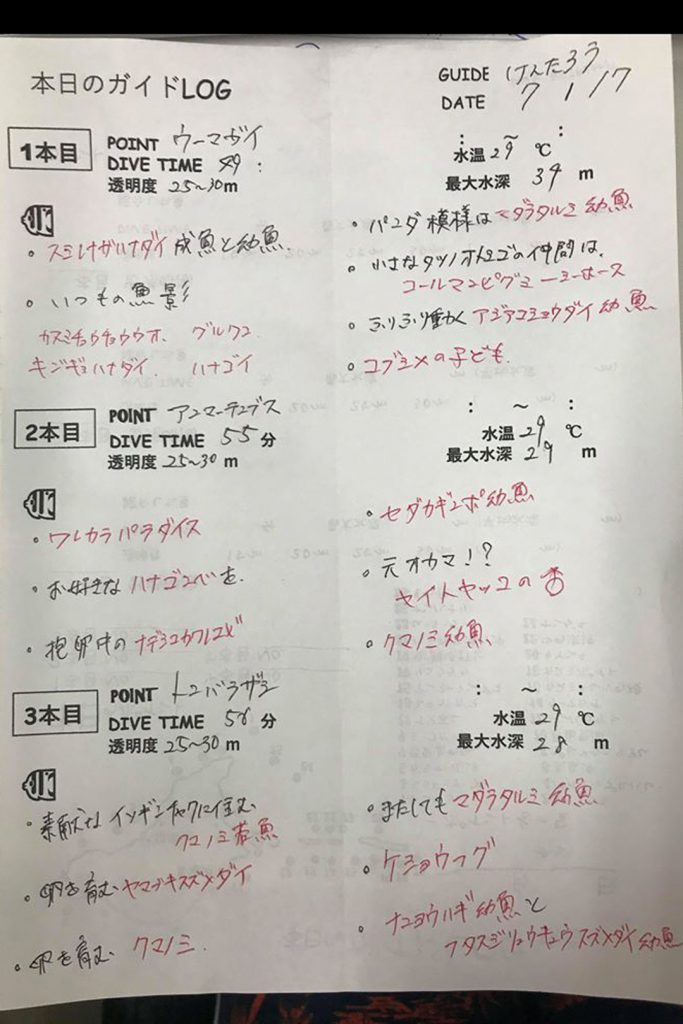 本日のガイドLOG
GUIDE けんたろう
DATE 7 1/17
1本目
POINT ウーマガイ
DIVE TIME 49 :
透明度 25~30m
: ~ :
水温 29 ℃
最大水深 34 m
・スミレナガハナダイ 成魚と幼魚.
・いつもの魚影
カスミチョウチョウウオ、グルクン
キンギョハナダイ. ハナゴイ
・パンダ模様はマダラタルミ幼魚
・小さなタツノオトシゴの仲間は、
コールマンピグミーシーホース
・ふりふり動く アジアコショウダイ幼魚
・コブシメの子ども.
2本目
POINT アンマーチュブス
DIVE TIME 55 分
透明度 25~30 m
: ~ :
水温 29 ℃
最大水深 29 m
・ワレカラパラダイス
・お好きなハナゴンベを.
・抱卵中のナデシコカクレエビ
・セダカギンポ幼魚
・元オカマ!?
セイトヤッコの♂
・クマノミ幼魚
3本目
POINT トンバラザシ
DIVE TIME 56 分
透明度 25~30 m
: ~ :
水温 29 ℃
最大水深 28 m
・素敵なイソギンチャクに住む
クマノミ若魚
・卵を育むヤマブキスズメダイ
・卵を育む クマノミ.
・またしてもマダラタルミ幼魚
・ケショウフグ
・ナンヨウハギ幼魚と
フタスジリュウキュウスズメダイ幼魚